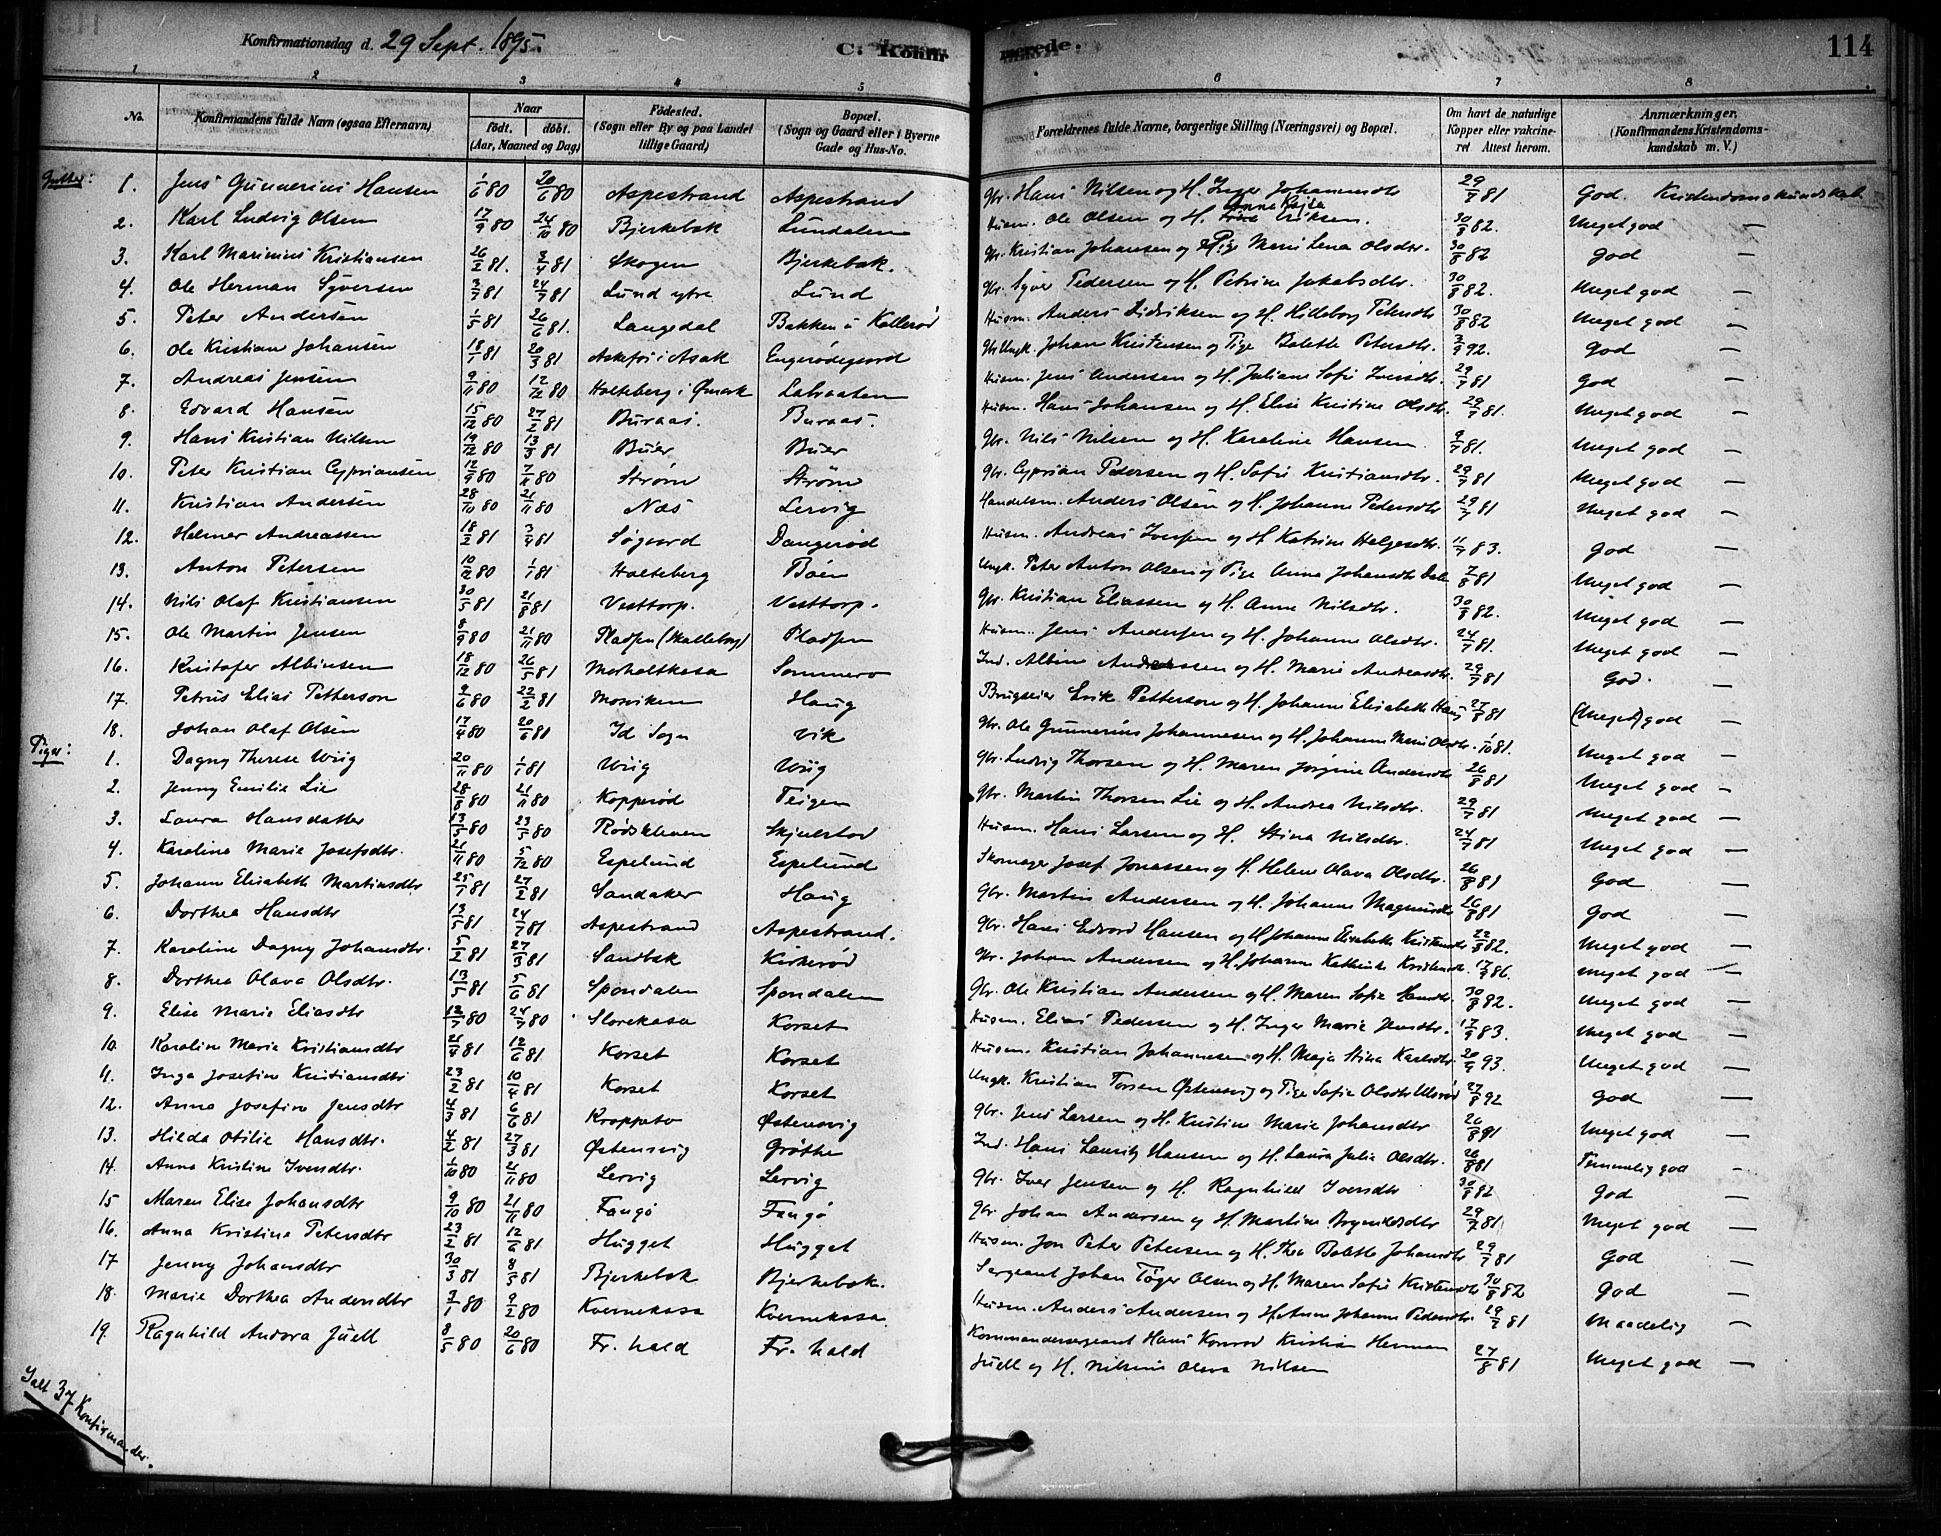 Konfirmationsdag d. 29 Sept. 1895. C. Konfirmerede. 114
1 2 3 4 5 6 7 8
No. Konfirmandens fulde Navn (ogsaa Efternavn) Naar født. døbt. (Aar, Maaned og Dag) Fødested. (Sogn eller By og paa Landet tillige Gaard) Bopæl. (Sogn og Gaard eller i Byerne Gade og Hus-No. Forældrenes fulde Navne, borgerlige Stilling (Næringsvei) og Bopæl. Om havt de naturlige Kopper eller vaccineret Attest herom. Anmærkninger. (Konfirmandens Kristendomskundskab m. V.)
Gutter:
1. Jens Gunnerius Hansen 1/6 80 20/6 80 Aspestrand Aspestrand Gbr. Hans Nilsen og H. Inger Johannesdtr 29/7 81 God Kristendomskundskab
2. Karl Ludvig Olsen 17/9 80 24/10 80 Bjerkebæk Lundalen Husm. Ole Olsen og H. Anne Kajsa Eriksen. 30/8 82. Meget god —
3. Karl Marinius Kristiansen 26/2 81. 3/4 81 Skogen Bjerkebæk. Kristian Johansen og Pige Maria Lena Olsdtr. 30/8 82 God —
4. Ole Herman Syversen 3/7 81 24/7 81 Lund ytre Lund Gbr. Syver Pedersen og H. Petrine Jakobsdtr. 30/8 82. Meget god —
5. Peter Andersen 1/5 81 26/6 81. Langedal Bakken u. Kallerød Husm. Anders Didriksen og H. Hilleborg Petersdtr 30/8 82 Meget god —
6. Ole Kristian Johansen 18/1 81 20/3 81 i Asak Engerødegaard Ungk. Johan Kristensen og Pige Bolette Petersdtr. 3/9 92. God —
7. Andreas Jensen 9/11 80 12/12 80 Holteberg i Ømark Labraaten Husm. Jens Andersen og H. Juliane Sofie Iversdtr. 29/7 81 God —
8. Edvard Hansen 15/12 80 27/2 81 Buraas. Buraas. Husm. Hans Johansen og H. Elise Kristine Olsdtr. 29/7 81. Meget god —
9. Hans Kristian Nilsen 19/12 80 13/3 81 Buer Buer Gbr. Nils Nilsen og H. Karoline Hansen 9/7 81. Meget god —
10. Peter Kristian Cypriansen 12/9 80 7/11 80 Strøm Strøm Gbr. Cyprian Pedersen og H. Sofie Kristiansdtr. 29/7 81 Meget god —
11. Kristian Andersen 28/10 80 21/11 80 Næs Lervig Handelsm. Anders Olsen og H. Johanne Pedersdtr 29/7 81 Meget god —
12. Helmer Andreassen 18/2 81 3/4 81 Søgaard Dangerød Husm. Andreas Iversen og H. Katrine Helgesdtr. 11/7 83. God —
13. Anton Petersen 10/12 80 1/1 81 Holteberg Boen Ungk. Peter Anton Olsen og Pige Anna Johansdtr Dal 7/8 81 Meget god —
14. Nils Olaf Kristiansen 30/5 81 21/8 81 Vesttorp. Vesttorp. Gbr. Kristian Eliassen og H. Anne Nilsdtr. 30/8 82. Meget god —
15. Ole Martin Jensen 8/9 80 21/11 80 Pladsen (Skalleberg) Pladsen Husm. Jens Andersen og H. Johanne Olsdtr. 24/7 81. Meget god —
16. Kristofer Albinsen 18/12 80 26/5 81 Morholtkasa Sommero Ind. Albin Andreassen og H. Marie Andreasdtr. 29/7 81 God. —
17. Petrus Elias Petterson 9/6 80 22/2 81 Mosviken Haug Brugseier Erik Petterson og H. Johanne Elisabeth Haug 27/8 81 (Meget) god —
18. Johan Olaf Olsen 17/4 80 20/6 81 Id Sogn Vik Gbr. Ole Gunnerius Johannesen og H. Johanne Marie Olsdtr. 1/10 81. Meget god —
Piger:
1. Dagny Therese Wiig 20/11 80 1/1 81 Wiig Wiig Gbr. Ludvig Thorsen og H. Maren Jørgine Andersdtr 26/8 81 Meget god —
2. Jenny Emilie Lie 28/8 80 21/11 80 Kopperød Teigen Gbr. Martin Thorsen Lie og H. Andrea Nilsdtr. 29/7 81 Meget god —
3. Laura Hansdatter 13/5 80 23/5 80 Rødskleven Skjulstad Husm. Hans Larsen og H. Stina Nilsdtr. 24/7 81 Meget god —
4. Karoline Marie Josefsdtr. 21/11 80 5/12 80 Espelund Espelund Skomager Josef Jonassen og H. Helene Olava Olsdtr. 26/8 81 God —
5. Johanne Elisabeth Martinsdtr 25/1 81 27/2 81 Sandaker Haug Gbr. Martin Andersen og H. Johanne Magnusdtr 26/8 81 God —
6. Dorthea Hansdtr 13/5 81 24/7 81 Aspestrand Aspestrand. Gbr. Hans Edvard Hansen og H. Johanne Elisabeth Kristensdtr 22/8 82. Meget god —
7. Karoline Dagny Johansdtr. 5/2 81 27/3 81 Sandbæk Kirkerød Gbr. Johan Andersen og H. Johanne Kathinka Kristensdtr. 17/9 86. Meget god —
8. Dorthea Olava Olsdtr. 13/5 81 5/6 81 Spondalen Spondalen Gbr. Ole Kristian Andersen og H. Maren Sofie Hansdtr. 30/8 82. Meget god —
9. Elise Marie Eliasdtr 12/7 80 24/7 80 Slorekasa Korset Husm. Elias Pedersen og H. Inger Marie Jensdtr. 17/9 83. Meget god —
10. Karoline Marie Kristiansdtr 21/4 81 12/6 81 Korset Korset Husm. Kristian Johannesen og H. Maja Stina Karlsdtr. 20/9 93. Meget god —
11. Inga Josefine Kristiansdtr 23/2 81 10/4 81 Korset Korset Ungk. Kristian Torsen Østensvig og Pige Sofie Olsdtr 27/8 92 God —
12. Anna Josefine Jensdtr 4/3 81 6/6 81 Kroppeto Østensvig Gbr. Jens Larsen og H. Kristine Marie Johansdtr 26/8 81 Meget god —
13. Hilda Otilie Hansdtr. 4/2 81 27/3 81 Østensvig Grøtha Ind. Hans Lauritz Hansen og H. Laura Julie Olsdtr. 26/8 81 Temmelig god —
14. Anna Kristine Iversdtr. 1/10 80 21/11 80 Lervig Lervig Gbr. Iver Jensen og H. Ragnhild Iversdtr 30/8 82 God —
15 Maren Elise Johansdtr 9/10 80 21/11 80 Fangø Fangø Gbr Johan Andersen og H. Martine Brynildsdtr 29/7 81 Meget god —
16. Anna Kristine Petersdtr 23/2 81 12/6 81 Hugget Hugget Husm. Jon Peter Petersen og H. Thea Bolette Johansdtr 29/7 81 God —
17 Jenny Johansdtr 30/3 81 8/5 81 Bjerkebæk Bjerkebæk. Sergeant Johan Tøger Olsen og H. Maren Sofie Kristensdtr 30/8 82 God —
18. Marie Dorthea Andersdtr 3/1 80 9/2 80 Kvernekasa Kvernekasa Husm. Anders Andersen og H. Anne Johanne Pedersdtr. 29/7 81 Maadelig —
19. Ragnhild Andora Juell 8/5 80 20/6 80 Fr. hald Fr. hald Kommandersergeant Hans Konrad Kristian Herman
Juell og H. Nilsine Olava Nilsen 27/8 81 Meget god —
Ialt 37 Konfirmander.